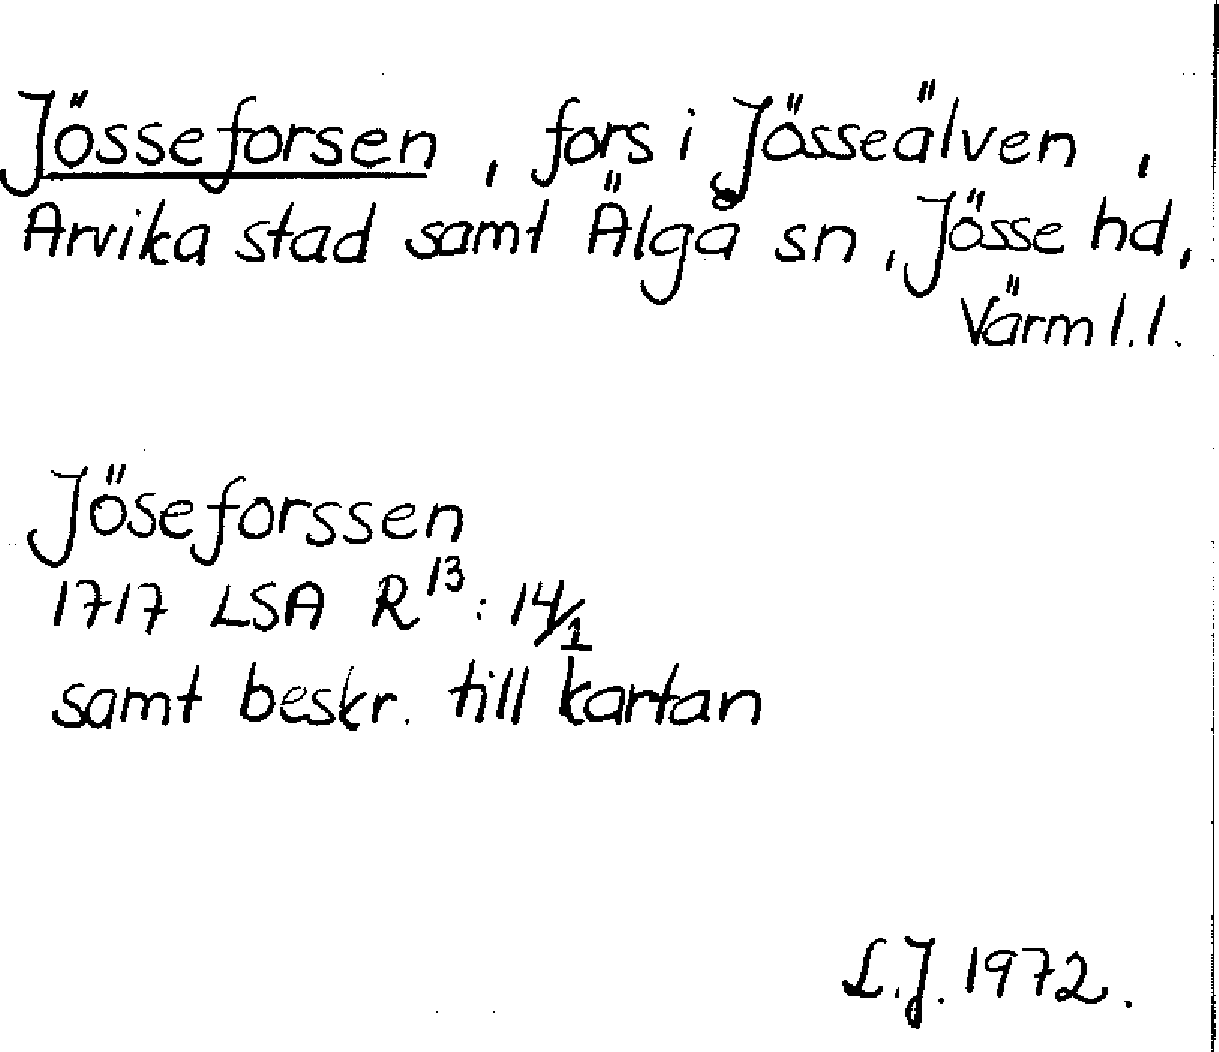 Jösseforsen, fors i Jösseälven,
Arvika stad samt Älgå sn, Jösse hd,
Värml.l.
Jöseforssen
1717 LSA R¹³: 14/1
samt beskr. till kartan
L.J. 1972.